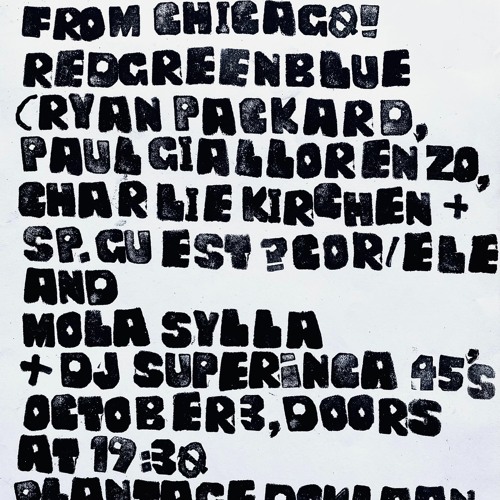 FROM CHICAGO!
REDGREENBLUE
(RYAN PACKARD,
PAUL GIALLORENZO,
CHARLIE KIRCHEN +
SP. GUEST ?COR/ELE
AND
MOLA SYLLA
+ DJ SUPERiNCA 45's
OCTOBER3, DOORS
AT 19:30
PLANTAGE DOKLAAN